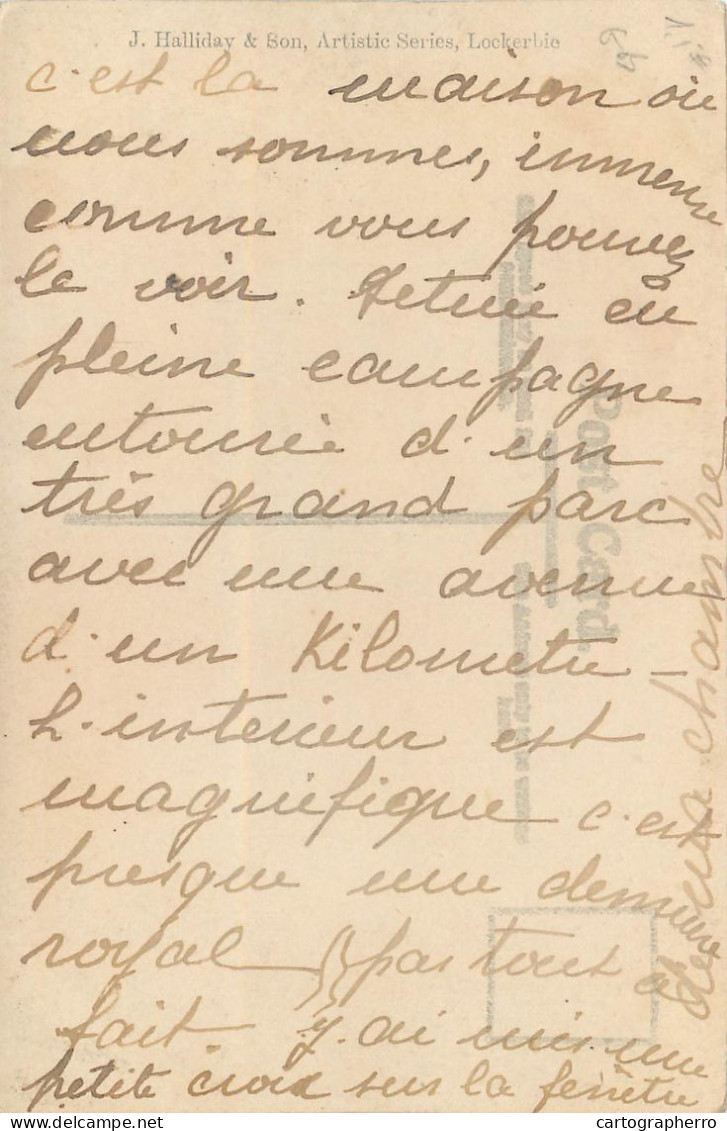 J. Halliday & Son, Artistic Series, Lockerbie
c'est la maison où
nous sommes, immense
comme vous pouvez
le voir. Située en
pleine campagne
entourée d'un
très grand parc
avec une avenue
d'un Kilometre -
L'interieur est
magnifique c'est
presque une demeure
royal (pas tout à
fait. J'ai mis une
petite croix sur la fenêtre
de ma chambre
Post Card.
cartographerro